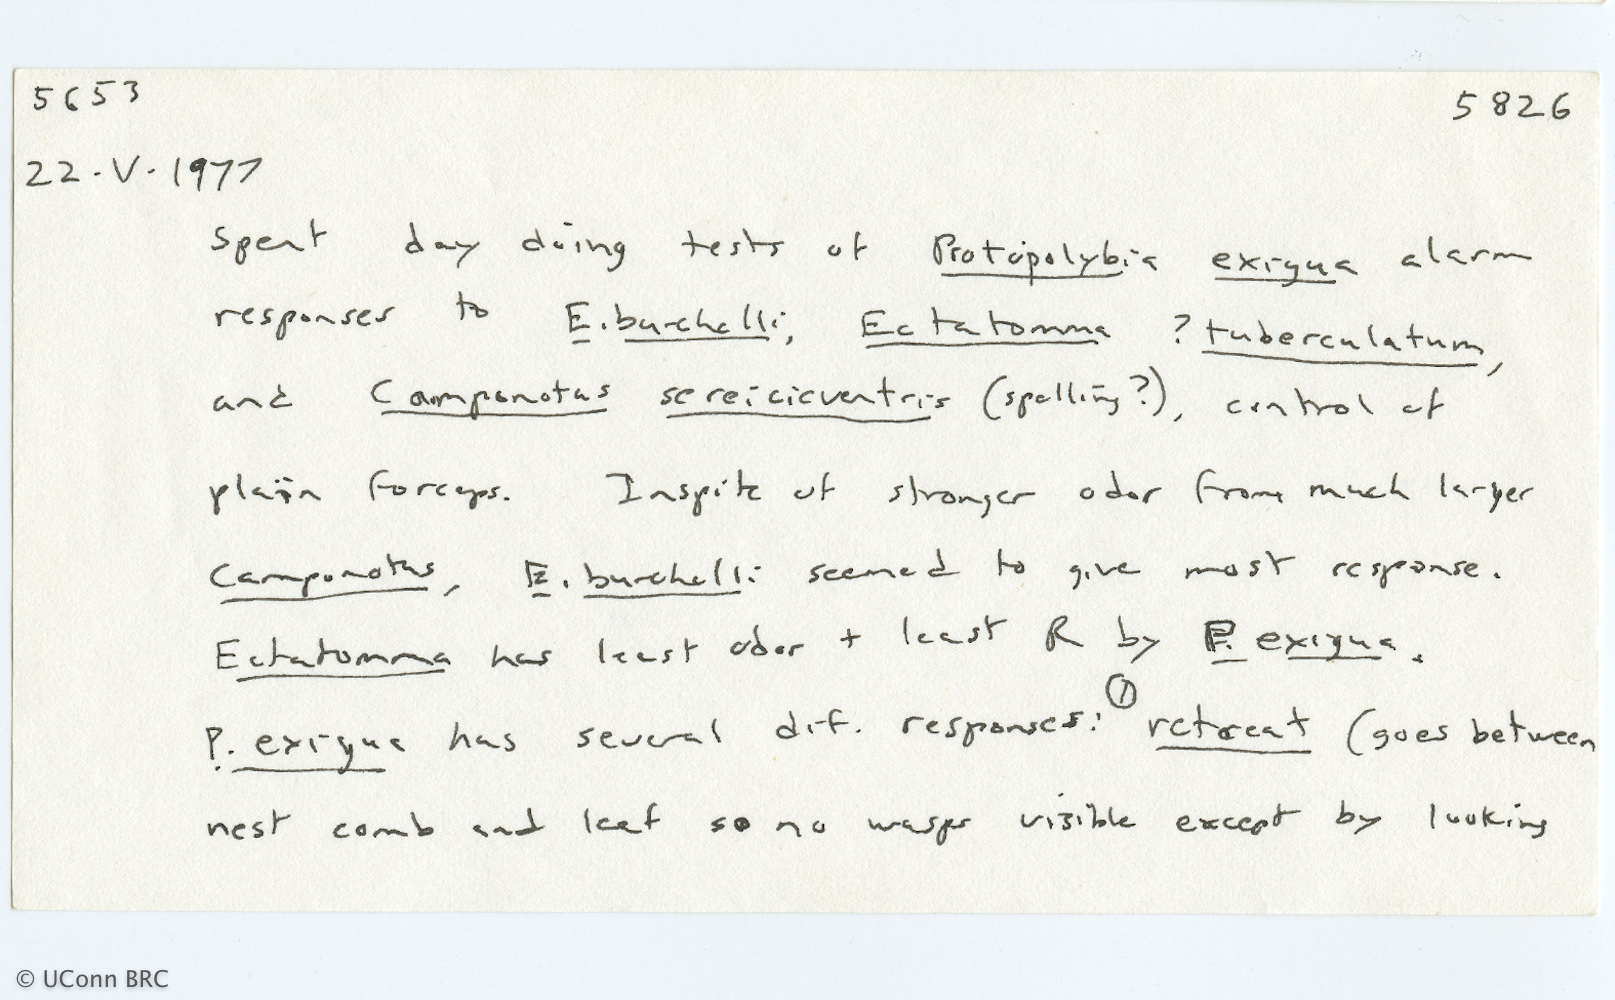 5653
5826
22.V.1977
Spent day doing tests of Protopolybia exigua alarm
responses to E. burchelli, Ectatomma ? tuberculatum,
and Camponotus sereicieventris (spelling?), control of
plain forceps. Inspite of stronger odor from much larger
Camponotus, E. burchelli seemed to give most response.
Ectatomma has least odor + least R by P. exigua.
P. exigua has several dif. responses: ① retreat (goes between
nest comb and leaf so no wasps visible except by looking
© UConn BRC